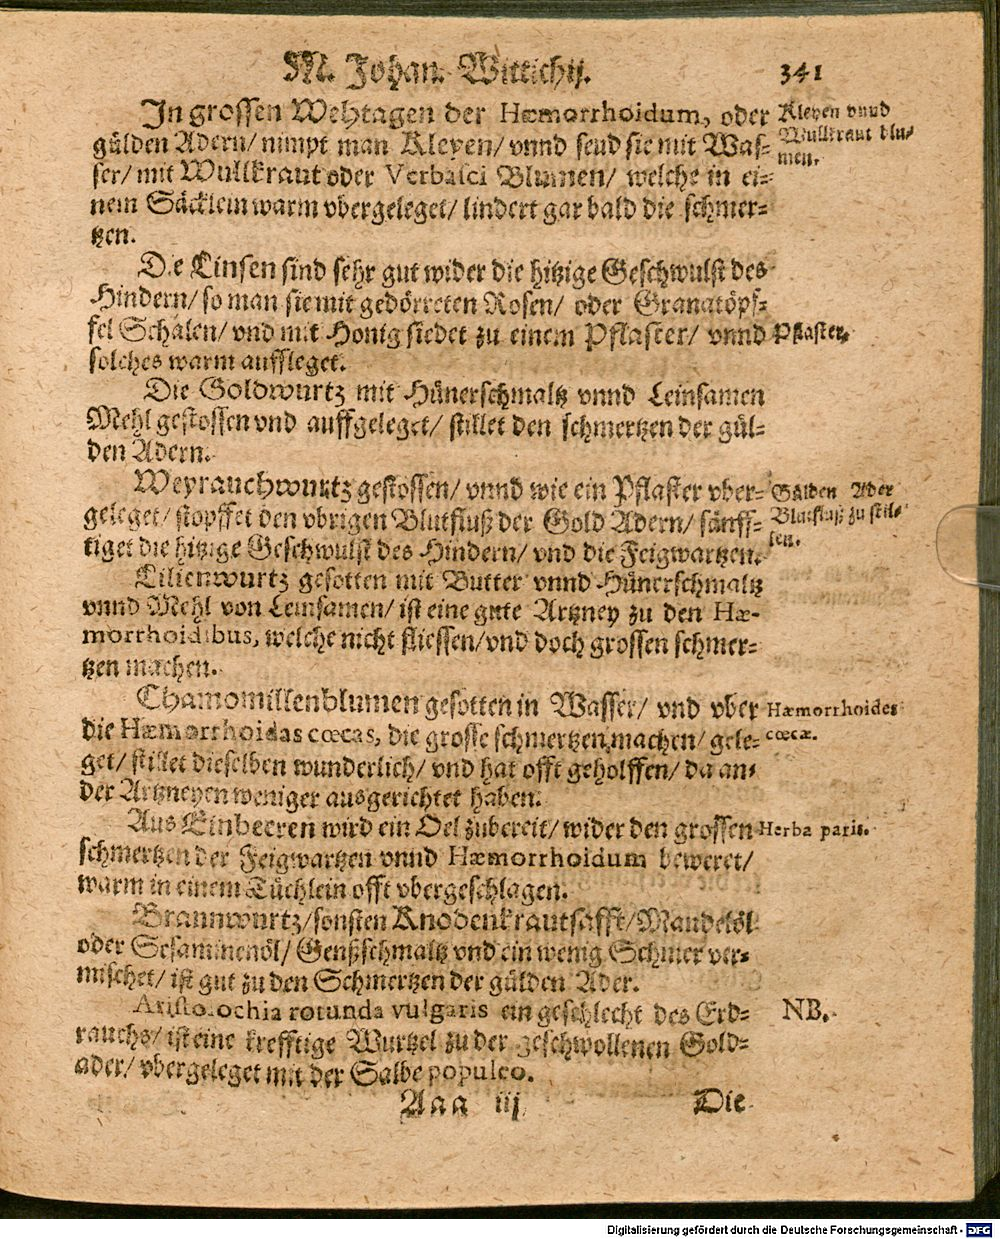 M. Johan. Wittichij. 341
In grossen Wehtagen der Hæmorrhoidum, oder
gülden Adern/ nimpt man Kleyen/ vnnd seud sie mit Was-
ser/ mit Wullkraut oder Verbasci Blumen/ welche in ei-
nem Säcklein warm vbergeleget/ lindert gar bald die schmer-
tzen.
Kleyen vnnd
Wullkraut blu-
men.
Die Linsen sind sehr gut wider die hitzige Geschwulst des
Hindern/ so man sie mit gedörreten Rosen/ oder Granatöpf-
fel Schalen/ vnd mit Honig siedet zu einem Pflaster/ vnnd
solches warm auffleget.
Pflaster.
Die Goldwurtz mit Hünerschmaltz vnnd Leinsamen
Mehl gestossen vnd auffgeleget/ stillet den schmertzen der gül-
den Adern.
Weyrauchwurtz gestossen/ vnnd wie ein Pflaster vber-
geleget/ stopffet den vbrigen Blutfluß der Gold Adern/ sänff-
tiget die hitzige Geschwulst des Hindern/ vnd die Feigwartzen.
Gülden Ader
Blutfluß zu stil-
len.
Lilienwurtz gesotten mit Butter vnnd Hünerschmaltz
vnnd Mehl von Leinsamen/ ist eine gute Artzney zu den Hæ-
morrhoidibus, welche nicht fliessen/ vnd doch grossen schmer-
tzen machen.
Chamomillenblumen gesotten in Wasser/ vnd vber
die Hæmorrhoidas cœcas, die grosse schmertzen machen/ gele-
get/ stillet dieselben wunderlich/ vnd hat offt geholffen/ da an-
der Artzneyen weniger ausgerichtet haben.
Hæmorrhoides
cœcæ.
Aus Einbeeren wird ein Oel zubereit/ wider den grossen
schmertzen der Feigwartzen vnnd Hæmorrhoidum beweret/
warm in einem Tüchlein offt vbergeschlagen.
Herba paris.
Braunwurtz/ sonsten Knodenkrautsafft/ Mandelöl
oder Sesaminenöl/ Genßschmaltz vnd ein wenig Schmer ver-
mischet/ ist gut zu den Schmertzen der gülden Ader.
Aristolochia rotunda vulgaris ein geschlecht des Erd-
rauchs/ ist eine krefftige Wurtzel zu der geschwollenen Gold-
ader/ vbergeleget mit der Salbe populeo.
NB.
Aaa iij Die
Digitalisierung gefördert durch die Deutsche Forschungsgemeinschaft - DFG